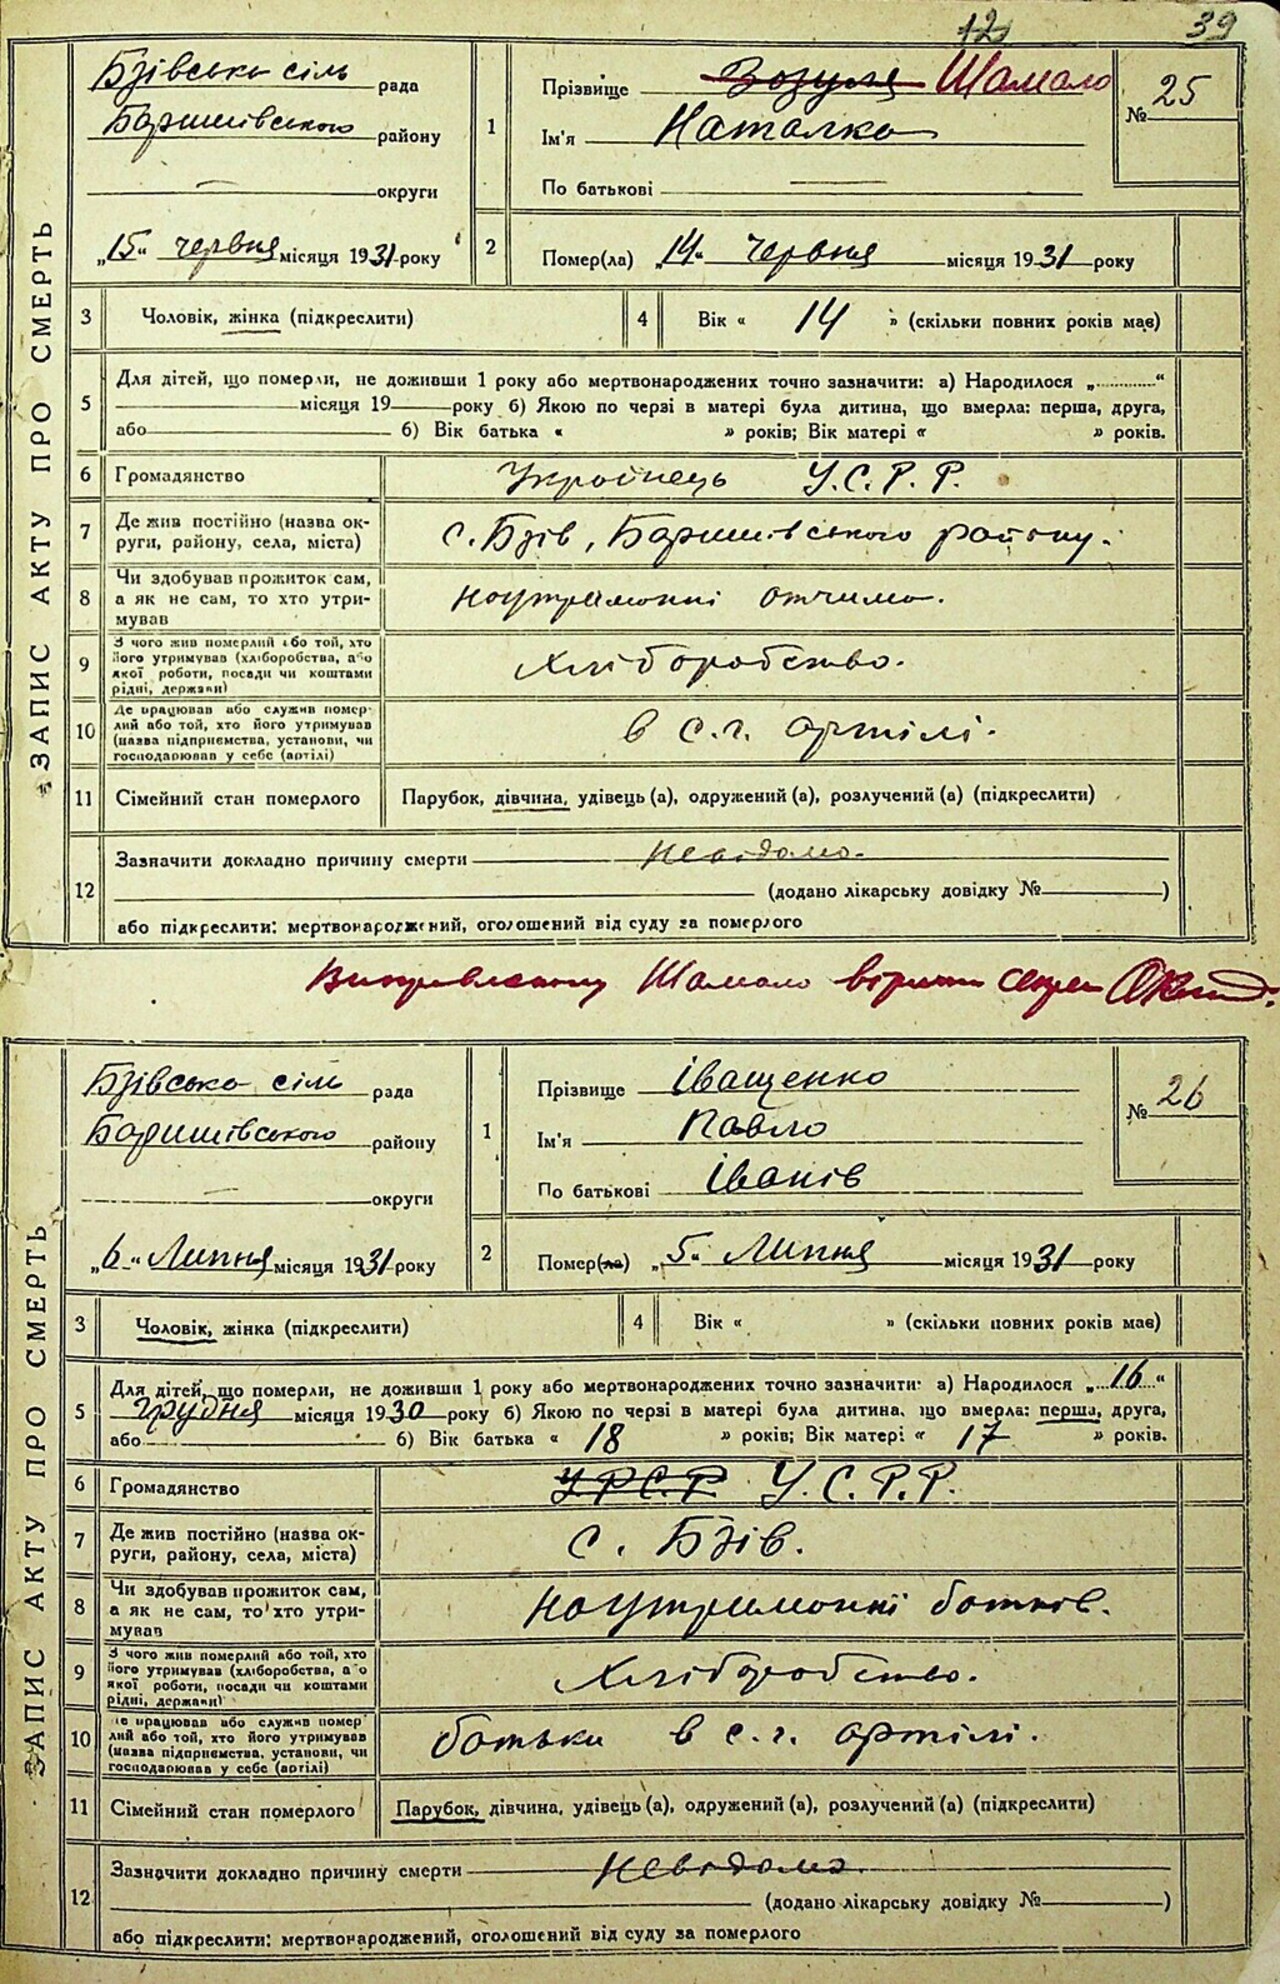 12 39
ЗАПИС АКТУ ПРО СМЕРТЬ
Бзівська сіль рада
Баришівського району
округи
„15“ червня місяця 1931 року
1 Прізвище Зозуля Шамало
Ім'я Наталка
По батькові —
№ 25
2 Помер(ла) „14“ червня місяця 1931 року
3 Чоловік, жінка (підкреслити)
4 Вік « 14 » (скільки повних років має)
5 Для дітей, що померли, не доживши 1 року або мертвонароджених точно зазначити: а) Народилося „..........“
місяця 19 року б) Якою по черзі в матері була дитина, що вмерла: перша, друга,
або б) Вік батька « » років; Вік матері « » років.
6 Громадянство Українець У.С.Р.Р.
7 Де жив постійно (назва ок-
руги, району, села, міста) с. Бзів, Баришівського району.
8 Чи здобував прожиток сам,
а як не сам, то хто утри-
мував наутриманні отчима.
9 З чого жив померлий або той, хто
його утримував (хліборобства, або
якої роботи, посади чи коштами
рідні, держави) Хліборобство.
10 Де працював або служив помер-
лий або той, хто його утримував
(назва підприємства, установи, чи
господарював у себе (артілі) в с.г. артілі.
11 Сімейний стан померлого Парубок, дівчина, удівець (а), одружений (а), розлучений (а) (підкреслити)
12 Зазначити докладно причину смерти Невідомо.
(додано лікарську довідку № )
або підкреслити: мертвонароджений, оголошений від суду за померлого
Виправленому Шамало вірити
ЗАПИС АКТУ ПРО СМЕРТЬ
Бзівська сіль рада
Баришівського району
округи
„6“ Липня місяця 1931 року
1 Прізвище Іващенко
Ім'я Павло
По батькові Іванів
№ 26
2 Помер(ла) „5“ Липня місяця 1931 року
3 Чоловік, жінка (підкреслити)
4 Вік « » (скільки повних років має)
5 Для дітей, що померли, не доживши 1 року або мертвонароджених точно зазначити: а) Народилося „16“
грудня місяця 1930 року б) Якою по черзі в матері була дитина, що вмерла: перша, друга,
або б) Вік батька « 18 » років; Вік матері « 17 » років.
6 Громадянство У.Р.С.Р. У.С.Р.Р.
7 Де жив постійно (назва ок-
руги, району, села, міста) с. Бзів.
8 Чи здобував прожиток сам,
а як не сам, то хто утри-
мував наутриманні батьків.
9 З чого жив померлий або той, хто
його утримував (хліборобства, або
якої роботи, посади чи коштами
рідні, держави) Хліборобство.
10 Де працював або служив помер
лий або той, хто його утримував
(назва підприємства, установи, чи
господарював у себе (артілі) батьки в с.г. артілі.
11 Сімейний стан померлого Парубок, дівчина, удівець (а), одружений (а), розлучений (а) (підкреслити)
12 Зазначити докладно причину смерти Невідомо.
(додано лікарську довідку № )
або підкреслити: мертвонароджений, оголошений від суду за померлого